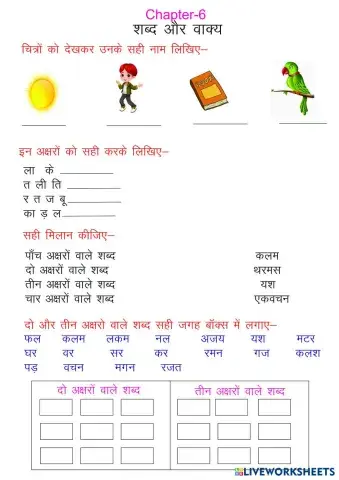 Chapter-6
शब्द और वाक्य
चित्रों को देखकर उनके सही नाम लिखिए–
इन अक्षरों को सही करके लिखिए–
ला के
त ली ति
र त ज बू
का ड़ ल
सही मिलान कीजिए–
पाँच अक्षरों वाले शब्द कलम
दो अक्षरों वाले शब्द थरमस
तीन अक्षरों वाले शब्द यश
चार अक्षरों वाले शब्द एकवचन
दो और तीन अक्षरो वाले शब्द सही जगह बॉक्स में लगाए–
फल कलम लकम नल अजय यश मटर
घर वर सर कर रमन गज कलश
पड़ वचन मगन रजत
दो अक्षरों वाले शब्द तीन अक्षरों वाले शब्द
LIVEWORKSHEETS